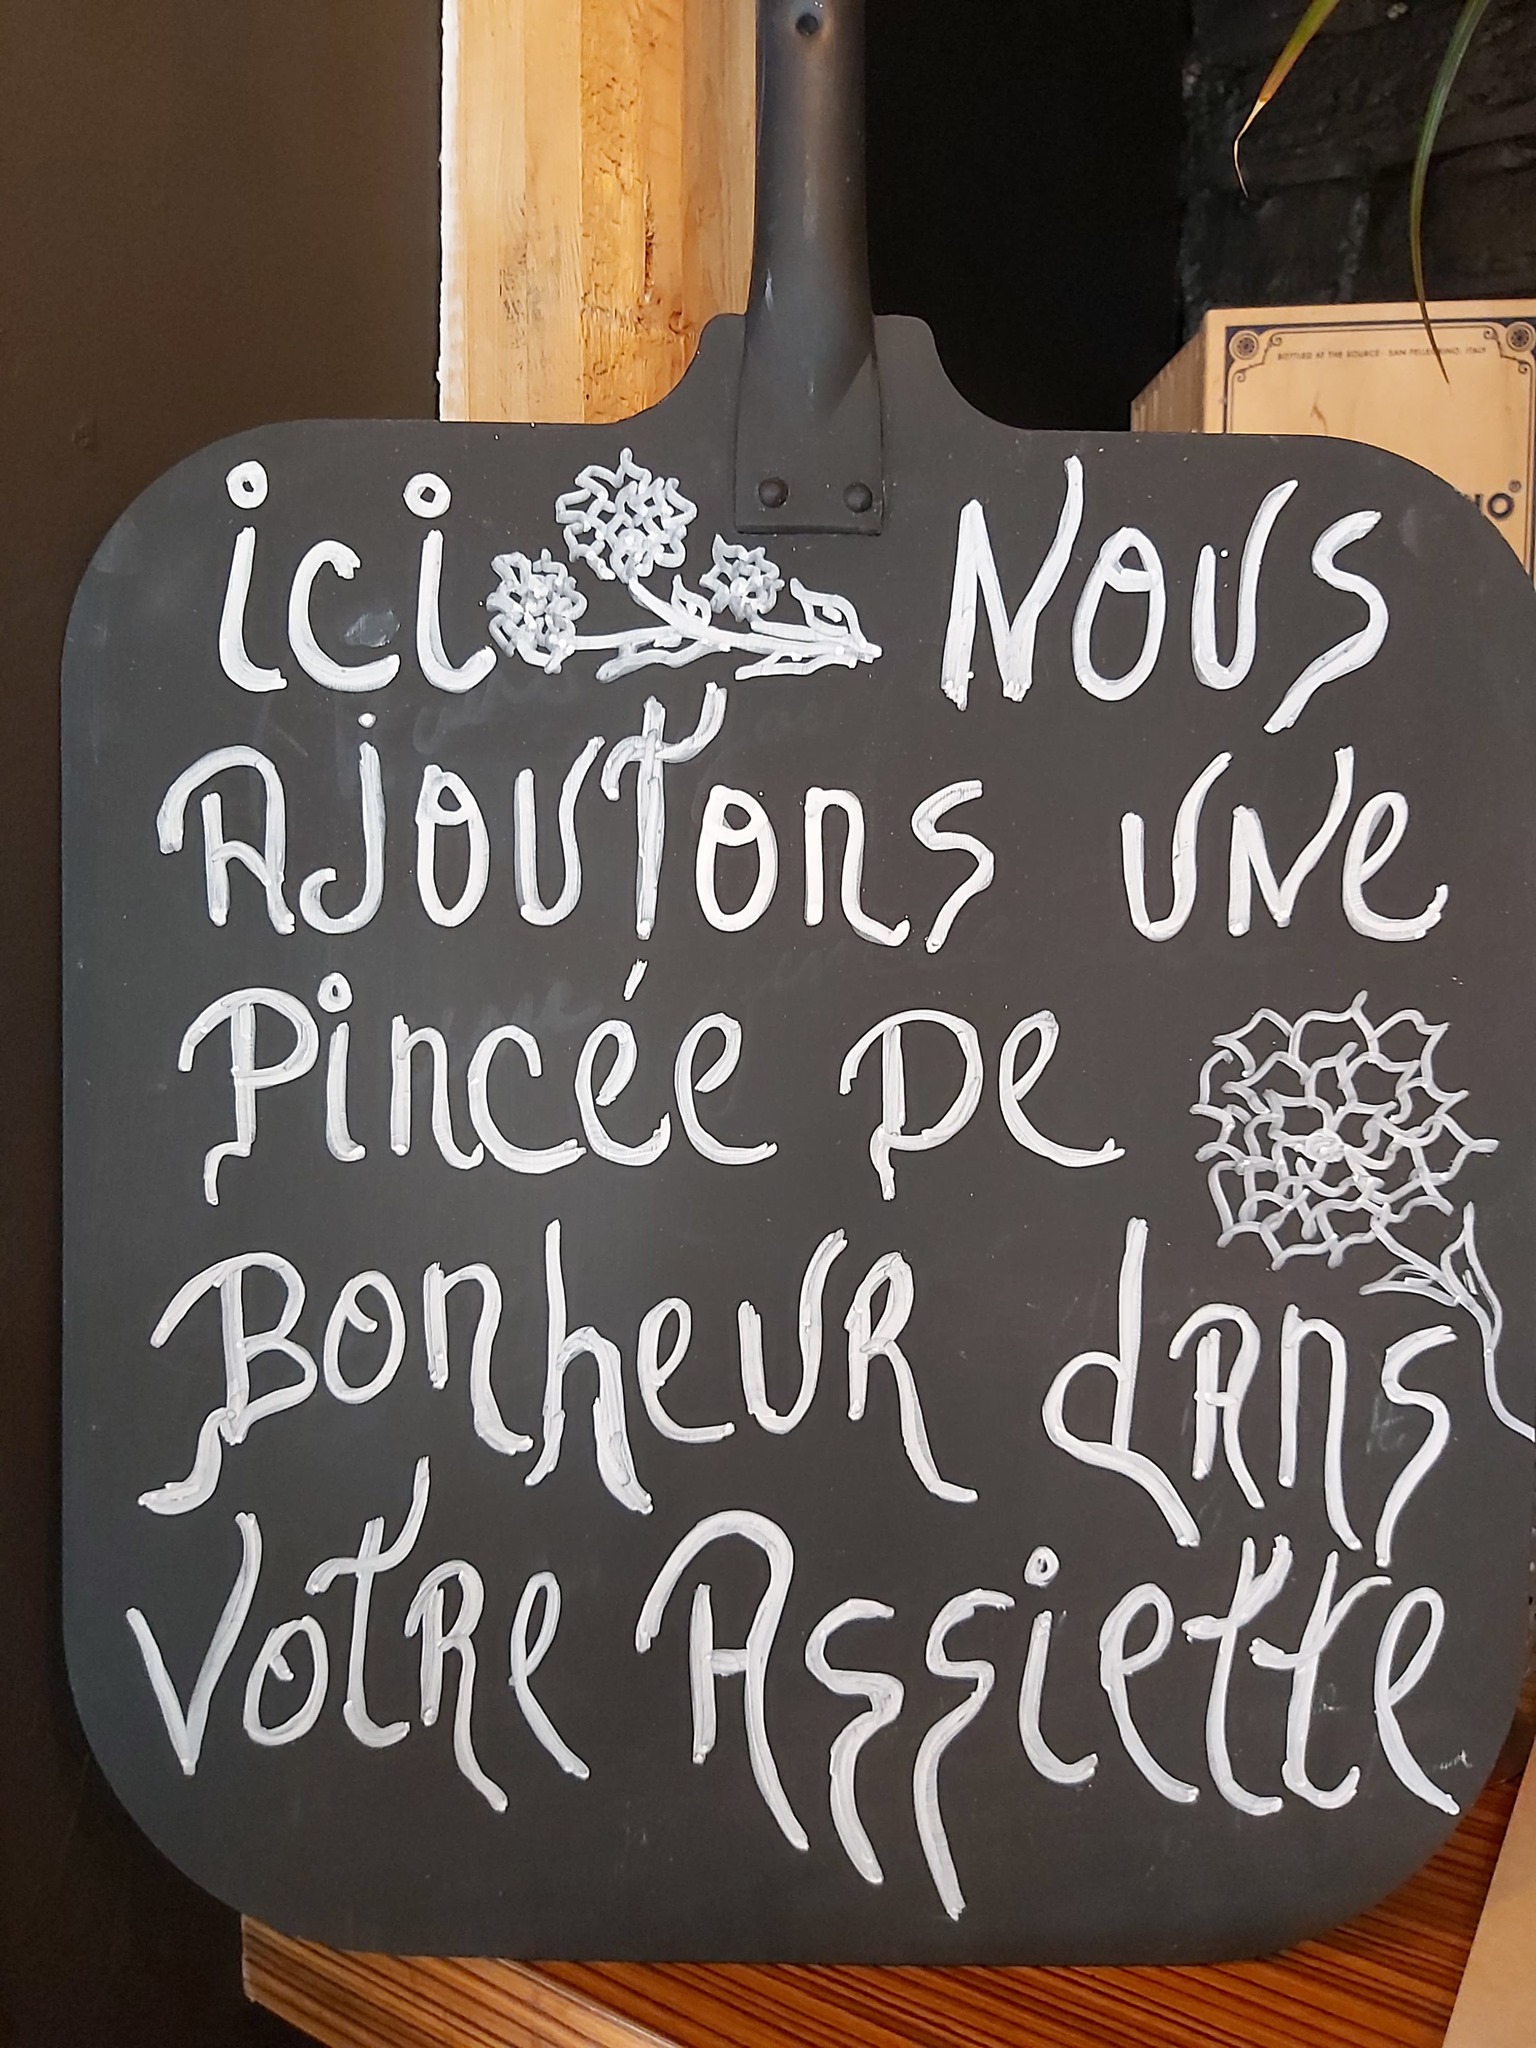 BOTTLED AT THE SOURCE · SAN PELLEGRINO, ITALY
ici NOUS
AJOUTONS UNE
Pincée De
BonheuR dAns
VotRe Assiette